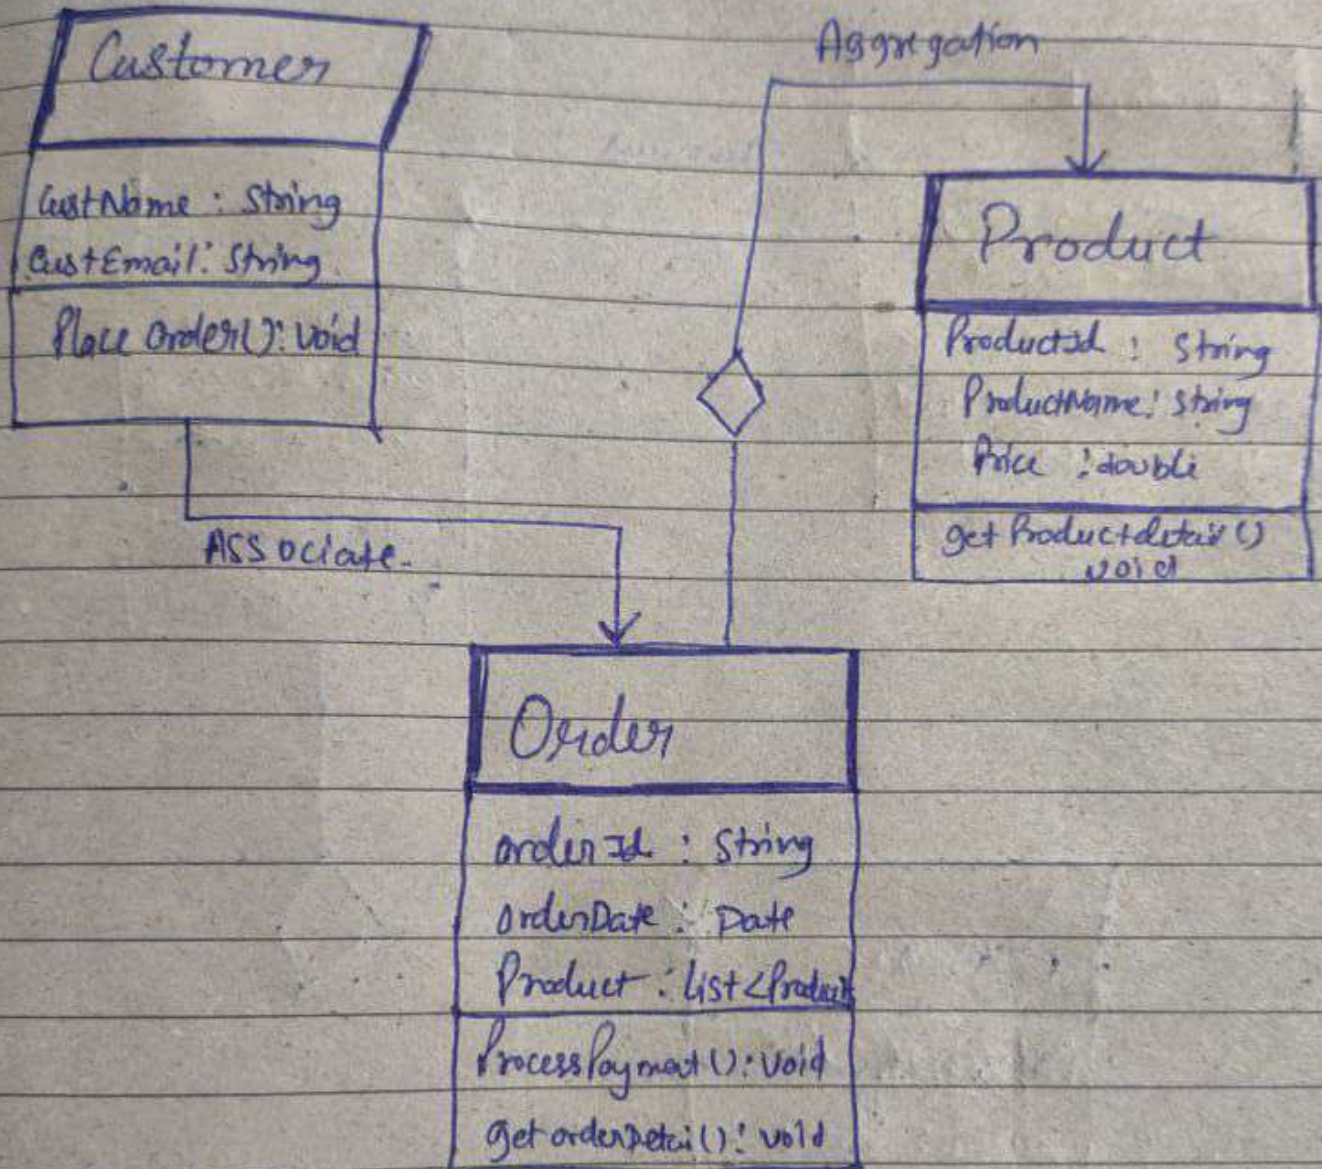 Customer
CustName : String
CustEmail: String
Place Order(): Void
Associate.
Aggregation
Product
ProductId : String
ProductName: String
Price : double
get Productdetail ()
void
Order
orderId : String
orderDate : Date
Product : List<Product
ProcessPayment(): Void
getorderDetail(): void